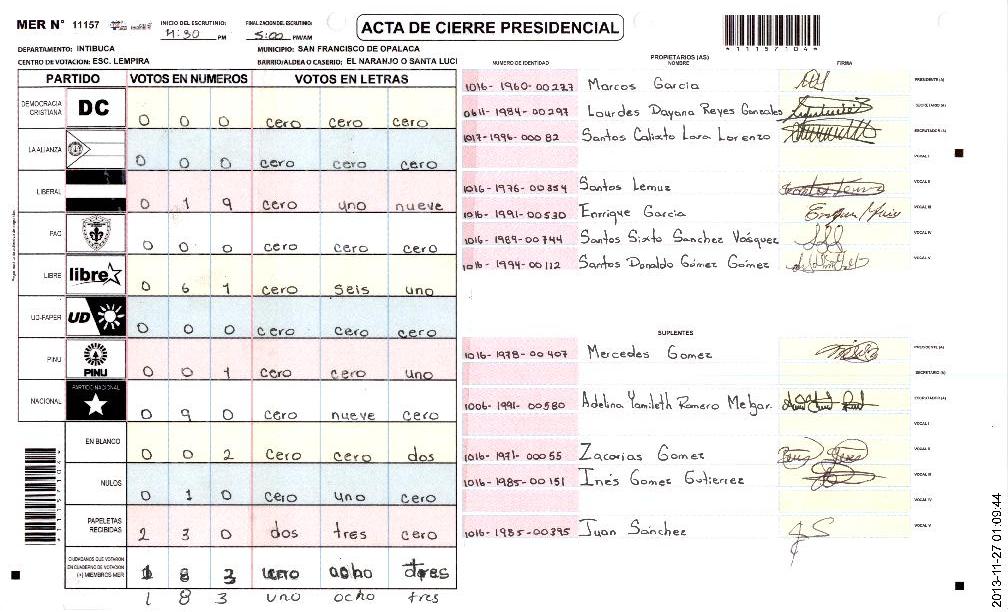 MER Nº 11157
INICIO DEL ESCRUTINIO: 4:30 PM
FINALIZACION DEL ESCRUTINIO: 5:00 PM/AM
ACTA DE CIERRE PRESIDENCIAL
*11157104*
DEPARTAMENTO: INTIBUCA
MUNICIPIO: SAN FRANCISCO DE OPALACA
CENTRO DE VOTACION: ESC. LEMPIRA
BARRIO/ALDEA O CASERIO: EL NARANJO O SANTA LUCI
PARTIDO VOTOS EN NUMEROS VOTOS EN LETRAS
DEMOCRACIA CRISTIANA DC 0 0 0 cero cero cero
LA ALIANZA 0 0 0 cero cero cero
LIBERAL 0 1 9 cero uno nueve
PAC 0 0 0 cero cero cero
LIBRE libre 0 6 1 cero seis uno
UD-FAPER UD 0 0 0 cero cero cero
PINU PINU 0 0 1 cero cero uno
NACIONAL PARTIDO NACIONAL 0 9 0 cero nueve cero
EN BLANCO 0 0 2 cero cero dos
NULOS 0 1 0 cero uno cero
PAPELETAS RECIBIDAS 2 3 0 dos tres cero
CIUDADANOS QUE VOTARON EN CUADERNO DE VOTACION (+) MIEMBROS MER 1 8 3 uno ocho tres
1 8 3 uno ocho tres
PROPIETARIOS (AS)
NUMERO DE IDENTIDAD NOMBRE FIRMA
1016-1960-00237 Marcos Garcia PRESIDENTE (A)
0611-1984-00297 Lourdes Dayana Reyes Gonzales SECRETARIO (A)
1017-1996-00082 Santos Calixto Lara Lorenzo ESCRUTADOR (A)
VOCAL I
1016-1976-00354 Santos Lemuz VOCAL II
1016-1991-00530 Enrique Garcia VOCAL III
1016-1989-00744 Santos Sixto Sanchez Vásquez VOCAL IV
1016-1994-00112 Santos Donaldo Gómez Gómez VOCAL V
SUPLENTES
1016-1978-00407 Mercedes Gomez PRESIDENTE (A)
SECRETARIO (A)
1006-1991-00580 Adelina Yamileth Romero Melgar. ESCRUTADOR (A)
VOCAL I
1016-1971-00055 Zacarias Gomez VOCAL II
1016-1985-00151 Inés Gomez Gutierrez VOCAL III
VOCAL IV
1016-1985-00395 Juan Sánchez VOCAL V
*11157104*
2013-11-27 01:09:44